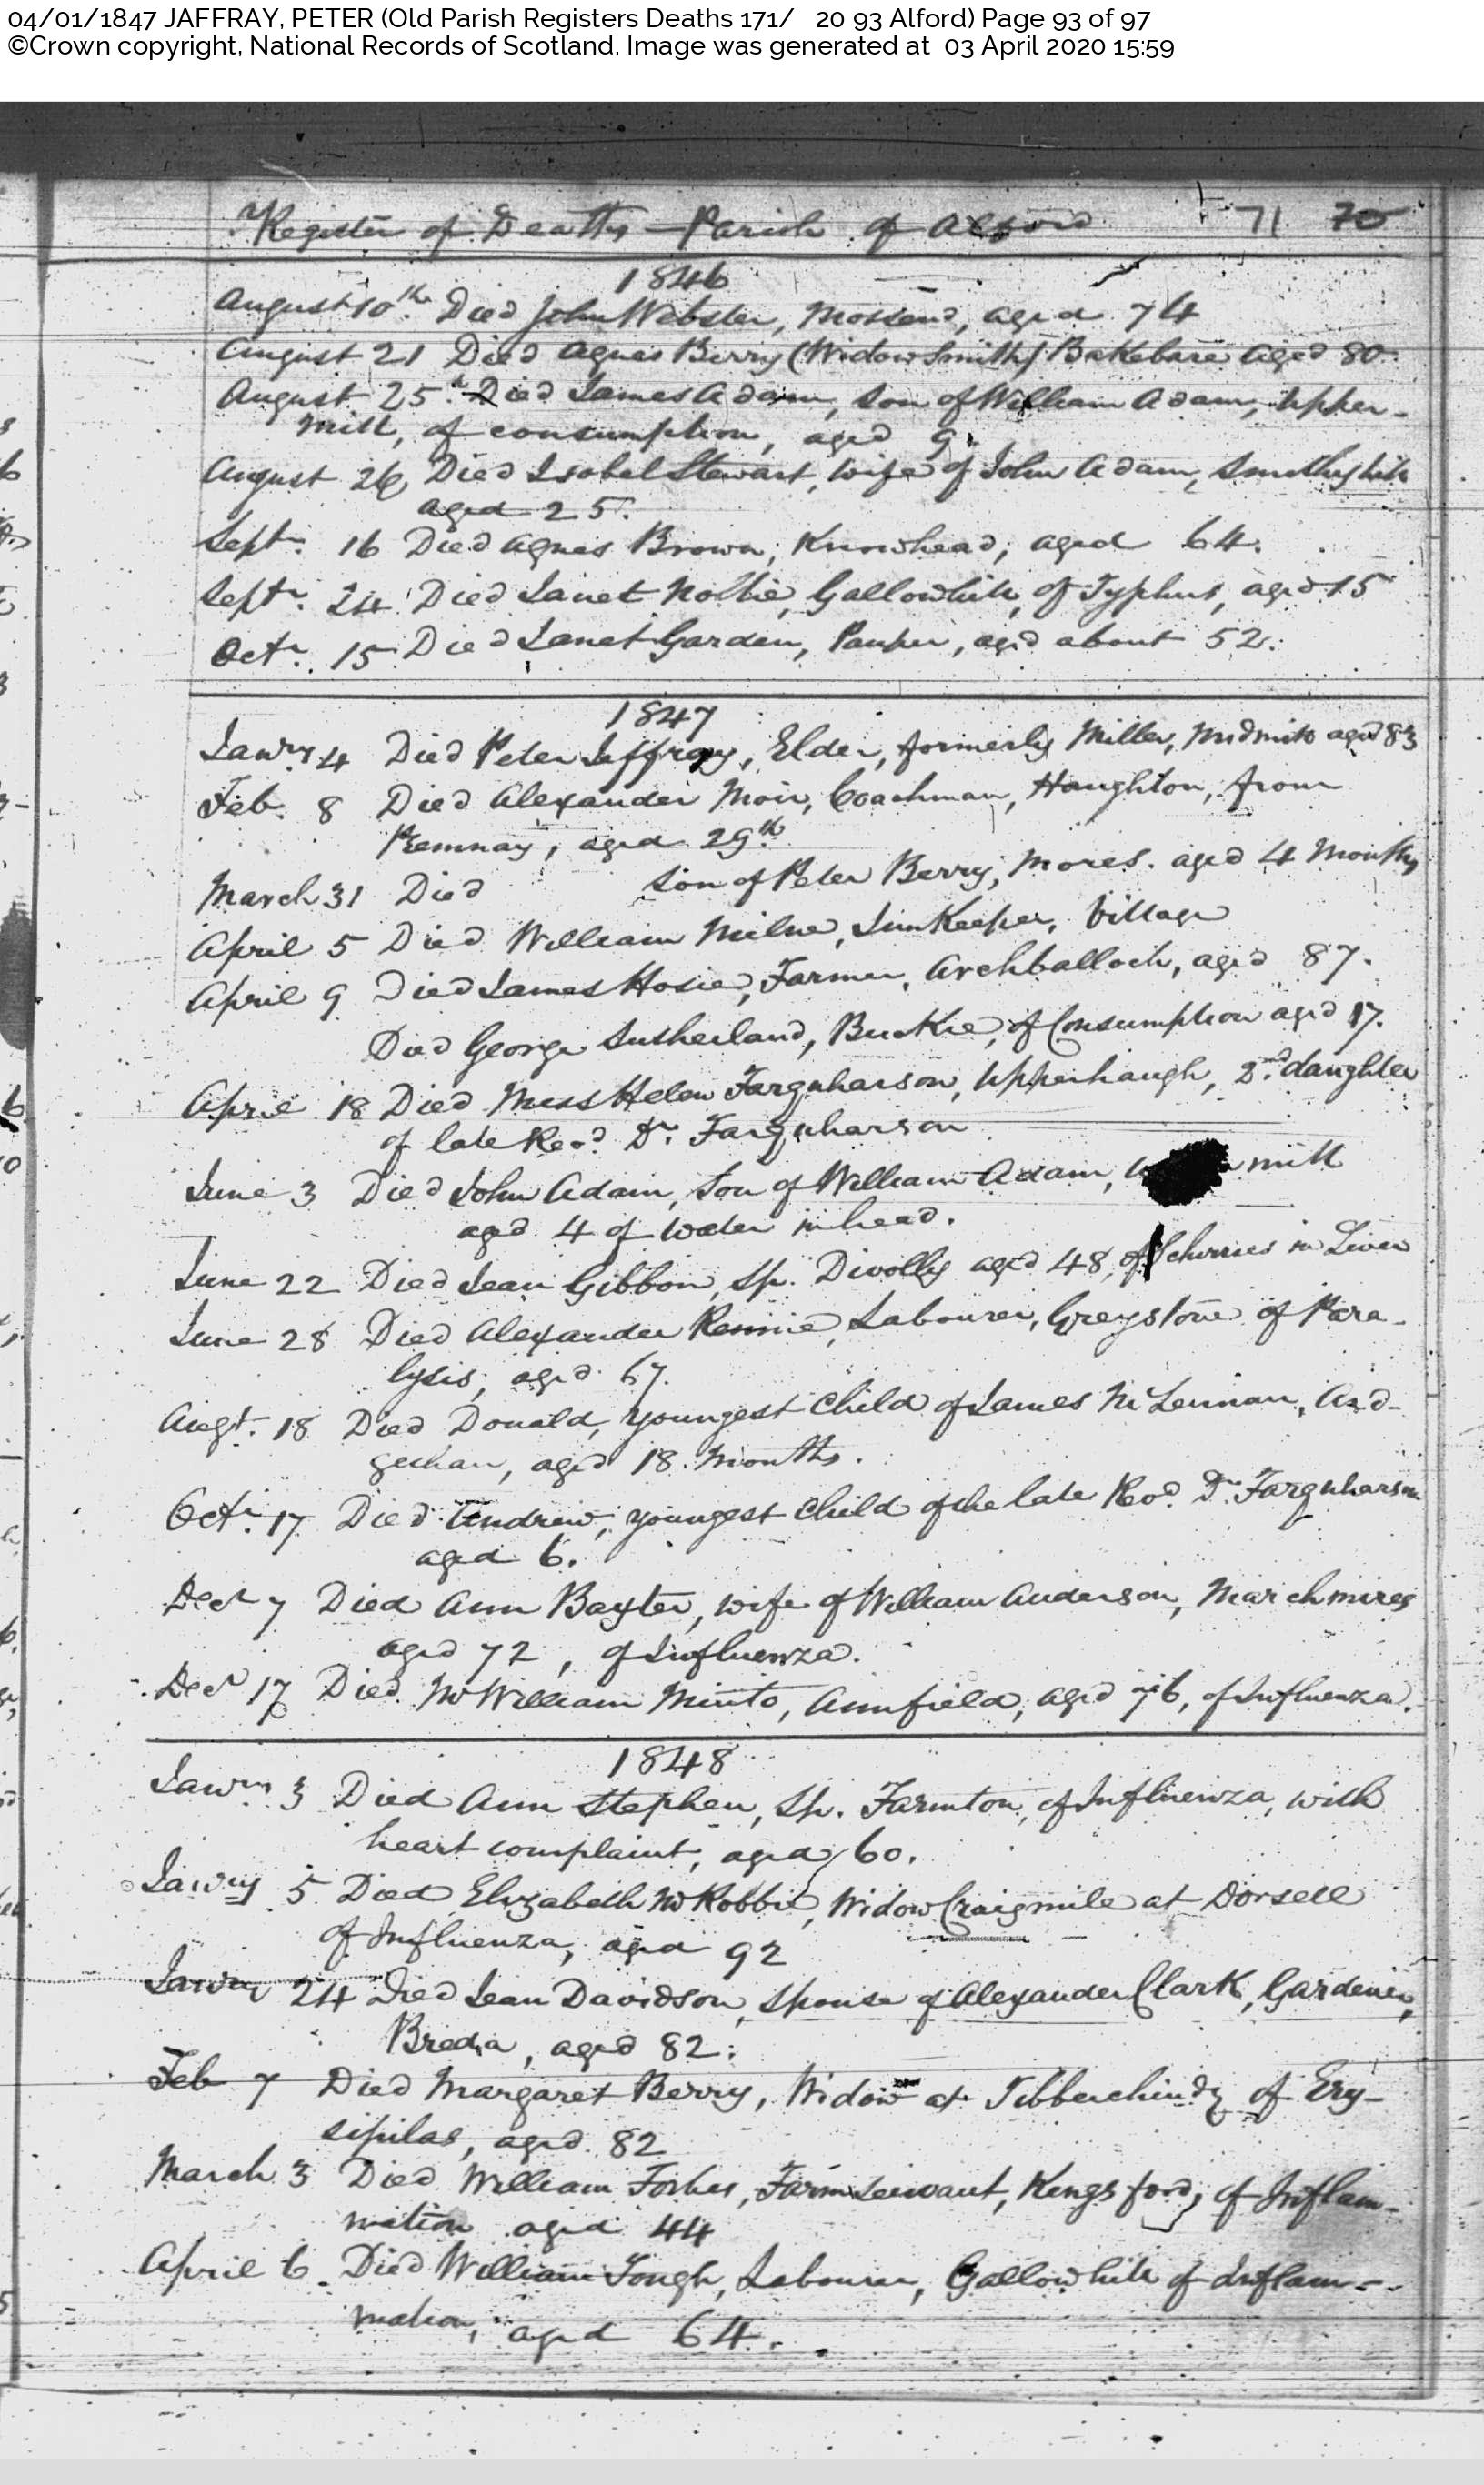 04/01/1847 JAFFRAY, PETER (Old Parish Registers Deaths 171/ 20 93 Alford) Page 93 of 97
©Crown copyright, National Records of Scotland. Image was generated at 03 April 2020 15:59
Register of Deaths – Parish of Alford 71 70
1846
August 10th. Died John Webster, Mossend, aged 74
August 21 Died Agnes Berry (Widow Smith) Bakebare aged 80
August 25. Died James Adam, son of William Adam, Upper-
mill, of consumption, aged 9.
August 26 Died Isobel Stewart, wife of John Adam, Smithyhill
aged 25.
Septr. 16 Died Agnes Brown, Knowhead, aged 64.
Septr. 24 Died Janet Gallowhill, of Typhus, aged 15
Octr. 15 Died Janet Garden, Pauper, aged about 52.
1847
Jawry 4 Died Peter Jaffray, Elder, formerly Miller, Midmill aged 83
Feb. 8 Died Alexander Moir, Coachman, Haughton, from
Kemnay, aged 29th.
March 31 Died son of Peter Berry, Mores. aged 4 Months
April 5 Died William Milne, InnKeeper, Village
April 9 Died James Hosie, Farmer, Archballoch, aged 87.
Died George Sutherland, Buckie, of Consumption aged 17.
April 18 Died Miss Helen Farquharson, Upperhaugh, 2nd. daughter
of late Revd. Dr. Farquharson
June 3 Died John Adam, Son of William Adam, mill
aged 4 of water in head.
June 22 Died Jean Gibbon, Sp. aged 48, of Schirrus in Liver
June 28 Died Alexander Rennie, Labourer, Greystone of Para-
lysis, aged 67.
Augt. 18 Died Donald, youngest child of James McLennan, Ard-
gethan, aged 18 months.
Octr. 17 Died Andrew, youngest child of the late Revd. Dr. Farquharson
aged 6.
Decr 7 Died Ann Baxter, wife of William Anderson, Marchmires
aged 72, of Influenza.
Decr 17 Died Mr William Minto, Annfield, aged 76, of Influenza.
1848
Jawry 3 Died Ann Stephen, Sp. Farmton, of Influenza, with
heart complaint, aged 60.
Jawry 5 Died Elizabeth McRobbie, Widow Craigmile at Dorsell
of Influenza, aged 92
Jawry 24 Died Jean Davidson, Spouse of Alexander Clark, Gardener,
Breda, aged 82.
Feb 7 Died Margaret Berry, Widow at Tibberchindy of Ery-
sipilas, aged 82
March 3 Died William Forbes, Farm Servant, Kingsford, of Inflam-
mation aged 44
April 6. Died William Tough, Labourer, Gallowhill of Inflam--
mation, aged 64.